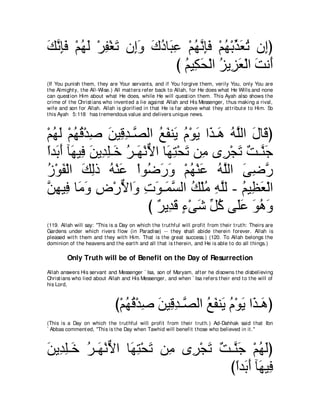 إِن تُعَذِّبْهُمْ فَإِنَّهُمْ عِبَادُكَ وَإِن تَغْفِرْ لَهُمْ فَإِنَّكَ
أَنتَ الْعَزِيزُ الْحَكِيمُ )
(If You punish them, they are Your servants, and if You forgive them, verily You, only You are
the Almighty, the All-Wise.) All matters refer back to Allah, for He does what He Wills and none
can question Him about what He does, while He will question them. This Ayah also shows the
crime of the Christians who invented a lie against Allah and His Messenger, thus making a rival,
wife and son for Allah. Allah is glorified in that He is far above what they attribute to Him. So
this Ayah 5:118 has tremendous value and delivers unique news.
(قَالَ اللَّهُ هَـذَا يَوْمُ يَنفَعُ الصَّـدِقِينَ صِدْقُهُمْ لَهُمْ
جَنَّـتٌ تَجْرِى مِن تَحْتِهَا الأَنْهَـرُ خَـلِدِينَ فِيهَآ أَبَداً
رَّضِىَ اللَّهُ عَنْهُمْ وَرَضُواْ عَنْهُ ذَلِكَ الْفَوْزُ
الْعَظِيمُ - للَّهِ مُلْكُ السَّمَـوَتِ وَالاٌّرْضِ وَمَا فِيهِنَّ
وَهُوَ عَلَى كُلِّ شَىْءٍ قَدِيرٌ )
(119. Allah will say: "This is a Day on which the truthful will profit from their truth: Theirs are
Gardens under which rivers flow (in Paradise) -- they shall abide therein forever. Allah is
pleased with them and they with Him. That is the great success.) (120. To Allah belongs the
dominion of the heavens and the earth and all that is therein, and He is able to do all things.)
Only Truth will be of Benefit on the Day of Resurrection
Allah answers His servant and Messenger `Isa, son of Maryam, after he disowns the disbelieving
Christians who lied about Allah and His Messenger, and when `Isa refers their end to the will of
his Lord,
(هَـذَا يَوْمُ يَنفَعُ الصَّـدِقِينَ صِدْقُهُمْ)
(This is a Day on which the truthful will profit from their truth.) Ad-Dahhak said that Ibn
`Abbas commented, "This is the Day when Tawhid will benefit those who believed in it."
(لَهُمْ جَنَّـتٌ تَجْرِى مِن تَحْتِهَا الأَنْهَـرُ خَـلِدِينَ
فِيهَآ أَبَداً)